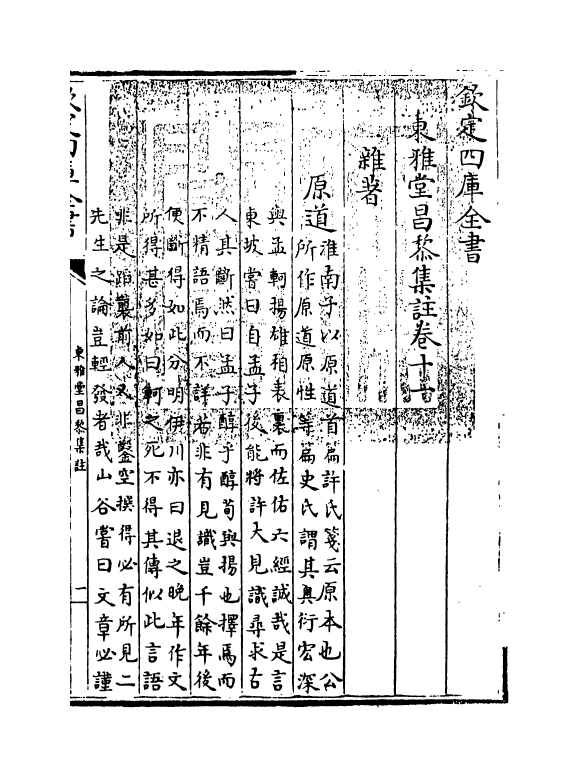 欽定四庫全書
東雅堂昌黎集註卷十一
雜著
原道
淮南子以原道首篇許氏箋云原本也公
所作原道原性等篇史氏謂其奧衍宏深
與孟軻揚雄相表裏而佐佑六經誠哉是言
東坡嘗曰自孟子後能將許大見識尋求古
人其斷然曰孟子醇乎醇荀與揚也擇焉而
不精語焉而不詳若非有見識豈千餘年後
便斷得如此分明伊川亦曰退之晚年作文
所得甚多如曰軻之死不得其傳似此言語
非是蹈襲前人又非鑿空撰得必有所見二
先生之論豈輕發者哉山谷嘗曰文章必謹
欽定四庫全書
東雅堂昌黎集註
一